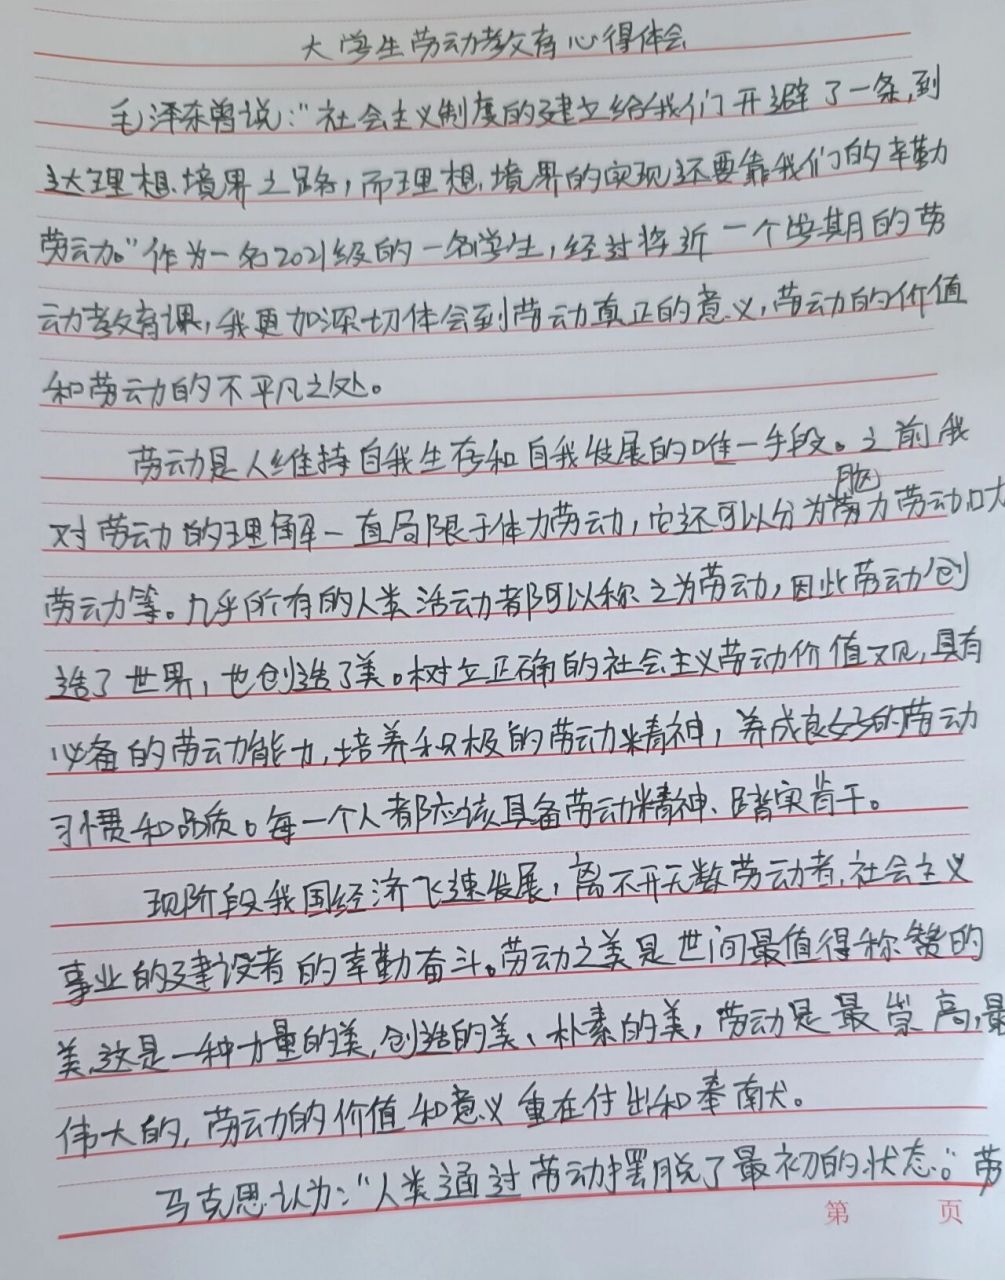 大学生劳动教育心得体会
毛泽东曾说:“社会主义制度的建立给我们开避了一条,到
达理想境界之路,而理想境界的实现还要靠我们的辛勤
劳动。”作为一名2021级的一名学生,经过将近一个学期的劳
动教育课,我更加深切体会到劳动真正的意义,劳动的价值
和劳动的不平凡之处。
劳动是人维持自我生存和自我发展的唯一手段。之前我
对劳动的理解一直局限于体力劳动,它还可以分为脑力劳动和
劳动等。几乎所有的人类活动都可以称之为劳动,因此劳动创
造了世界,也创造了美。树立正确的社会主义劳动价值观,具有
必备的劳动能力,培养积极的劳动精神,养成良好的劳动
习惯和品质。每一个人都应该具备劳动精神、踏实肯干。
现阶段我国经济飞速发展,离不开无数劳动者,社会主义
事业的建设者的辛勤奋斗。劳动之美是世间最值得称赞的
美,这是一种力量的美,创造的美、朴素的美,劳动是最崇高,最
伟大的,劳动的价值和意义重在付出和奉献。
马克思认为:“人类通过劳动摆脱了最初的状态。”劳
第 页